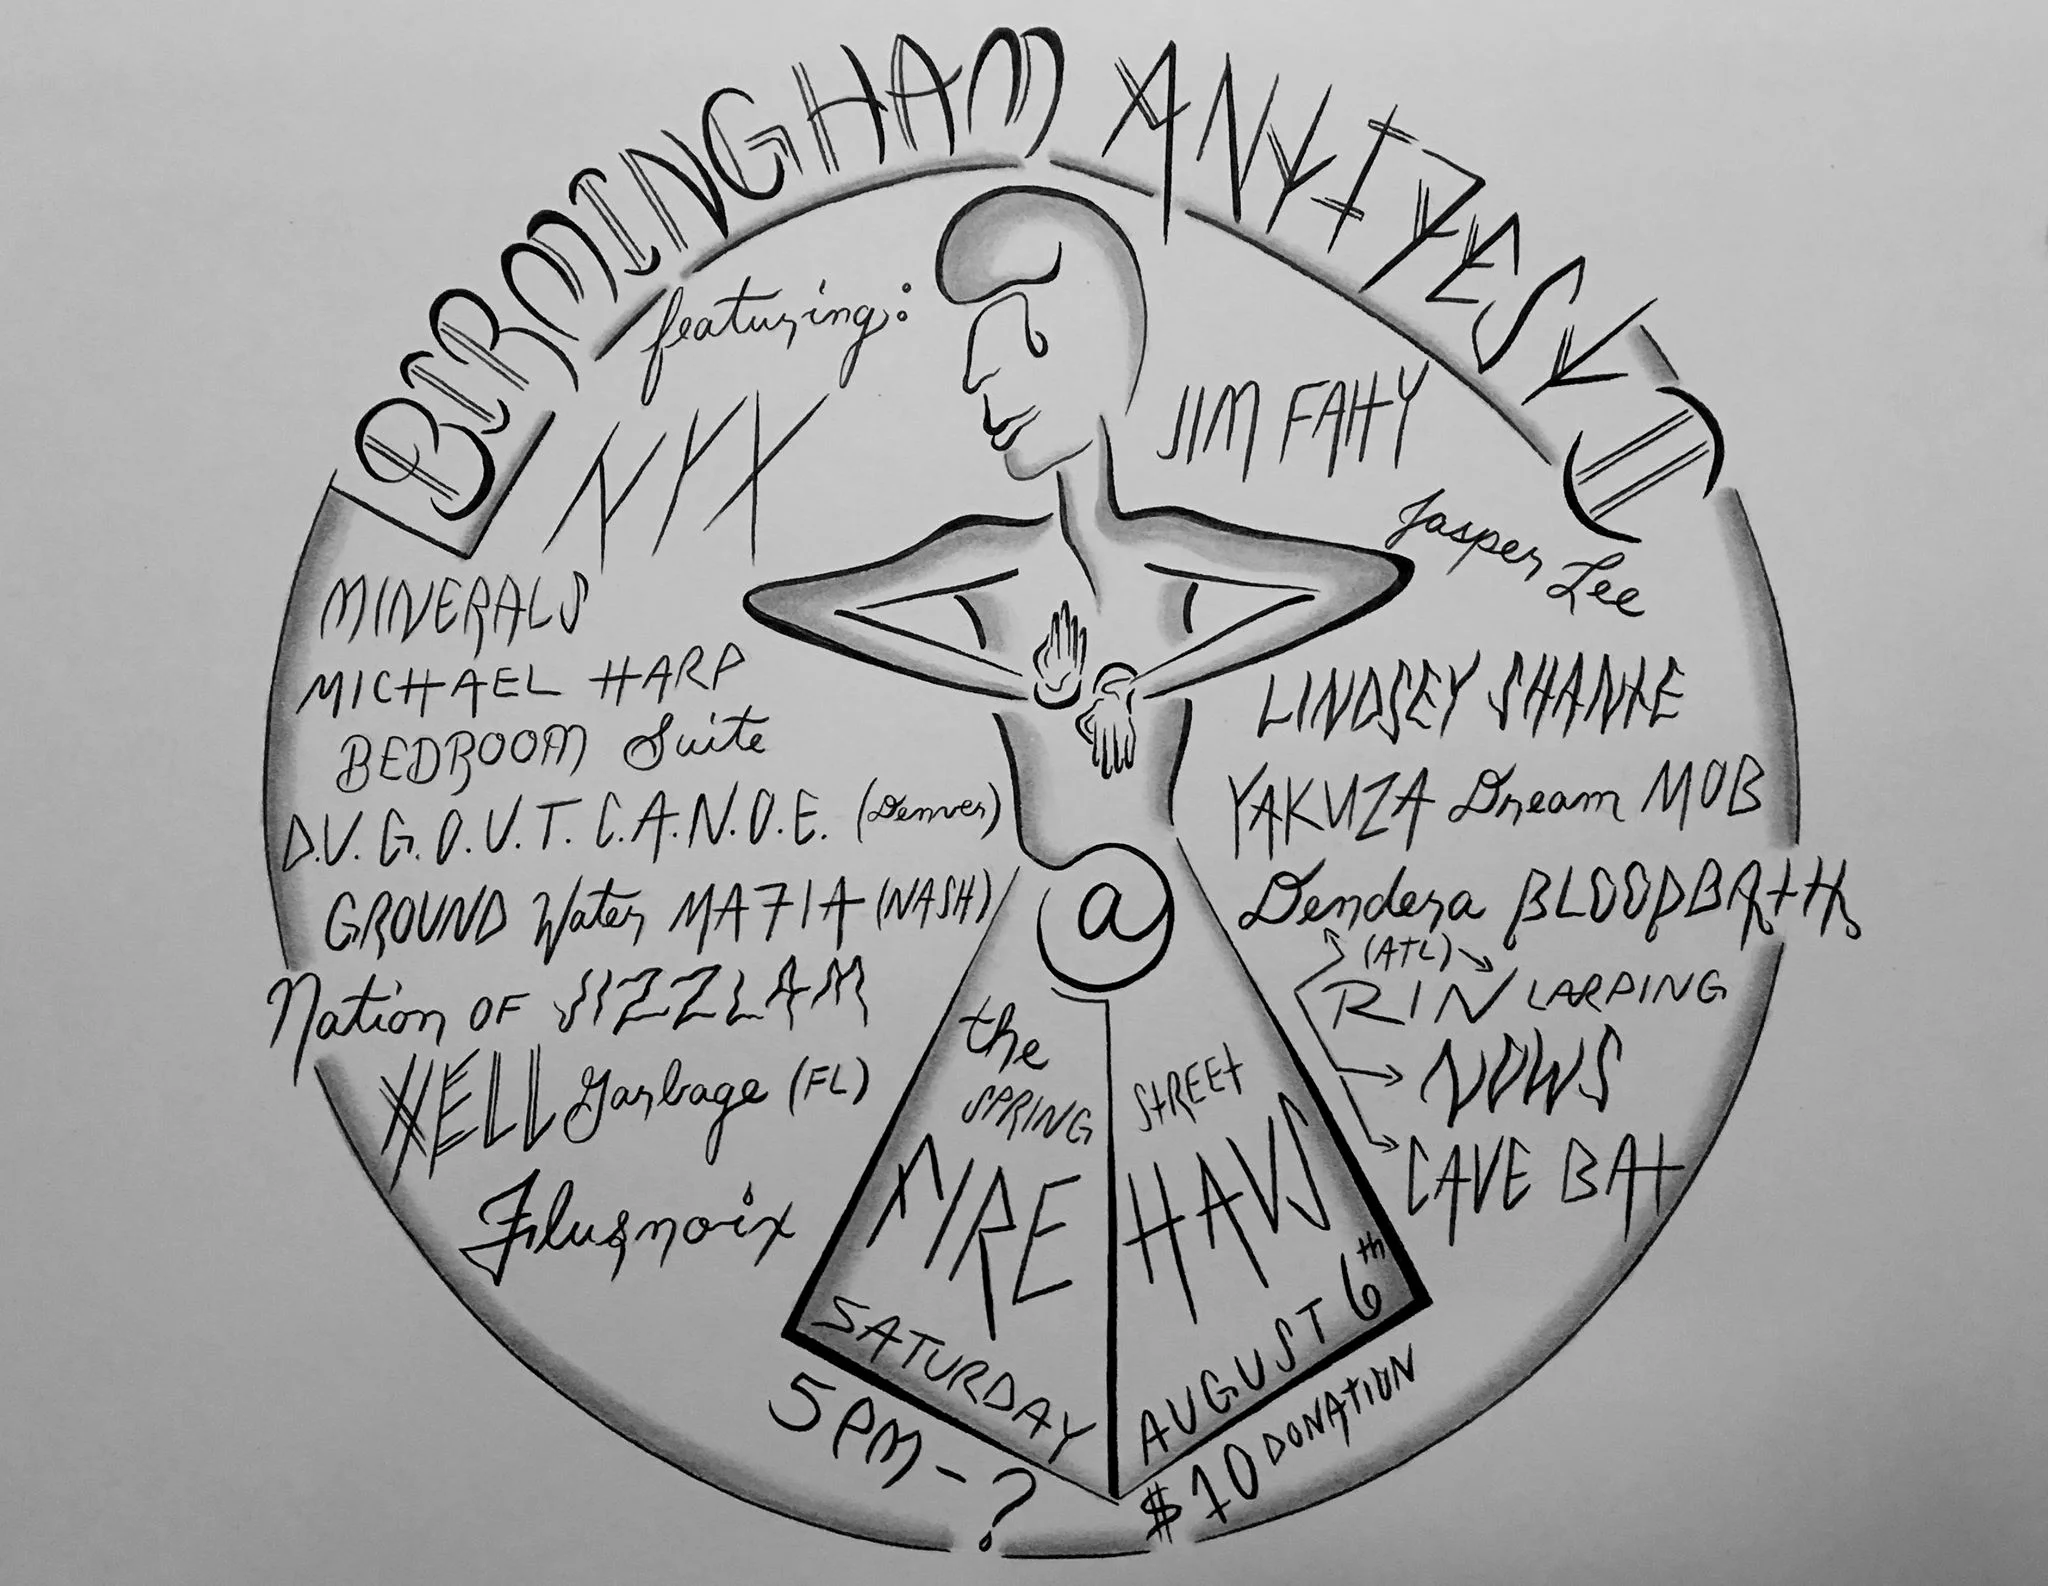 BIRMINGHAM ANTIFEST I
featuring:
NYX
MINERALS
MICHAEL HARP
BEDROOM Suite
D.U.G.O.U.T. C.A.N.O.E. (Denver)
GROUND Water MAFIA (NASH)
Nation OF SIZZLAM
HELL Garbage (FL)
Flusnoix
JIM FAHY
Jasper Lee
LINDSEY SHANTE
YAKUZA Dream MOB
Dendera BLOODBATH
(ATL)
RIN LARPING
NOWS
CAVE BAT
@
the
SPRING STREET
FIRE HAUS
SATURDAY AUGUST 6th
5PM-?
$10 DONATION